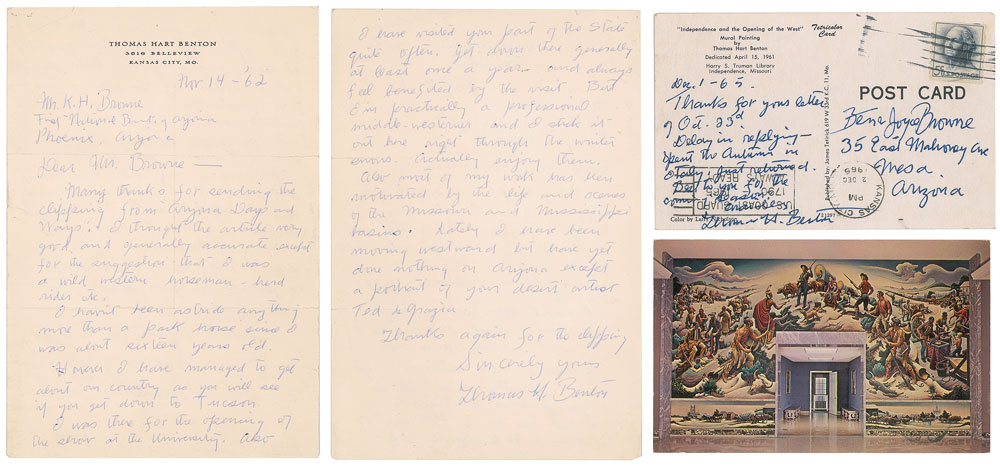 THOMAS HART BENTON
3616 BELLEVIEW
KANSAS CITY, MO.
Nov 14 - '62
Mr. K. H. Browne
First National Bank of Arizona
Phoenix, Arizona
Dear Mr. Browne —
Many thanks for sending the
clipping from Arizona Days and
Ways. I thought the article very
good and generally accurate except
for the suggestion that I was
a wild western horseman - herd
rider etc.
I haven't been astride anything
more than a pack horse since I
was about sixteen years old.
However I have managed to get
about our country as you will see
if you get down to Tucson.
I was there for the opening of
the show at the University. Also
I have visited your part of the State
quite often. Get down there generally
at least one a year - and always
feel benefited by the visit. But
I'm practically a professional
middle-westerner and I stick it
out here right through the winter
snows. Actually enjoy them.
Also most of my work has been
motivated by the life and scenes
of the Missouri and Mississippi
basins. Lately I have been
moving westward but have yet
done nothing on Arizona except
a portrait of your desert artist
Ted de Grazia.
Thanks again for the clipping
Sincerely yours
Thomas H. Benton
"Independence and the Opening of the West"
Mural Painting
by
Thomas Hart Benton
Dedicated April 15, 1961
Harry S. Truman Library
Independence, Missouri
Tetricolor
Card
Dec. 1 - 65.
Thanks for your letter
of Oct. 23d
Delay in replying -
spent the Autumn in
Italy. Just returned.
Best to you for the
coming
Thomas H. Benton
Color by
Published by: James Tetirick 619 W. 33rd K.C. 11, Mo.
U.S. POSTAGE
POST CARD
Joyce Browne
35 East Mahoney Ave
Mesa
Arizona
KANSAS CITY
PM
2 DEC
1965
U.S. COAST GUARD
1790
ALWAYS READY